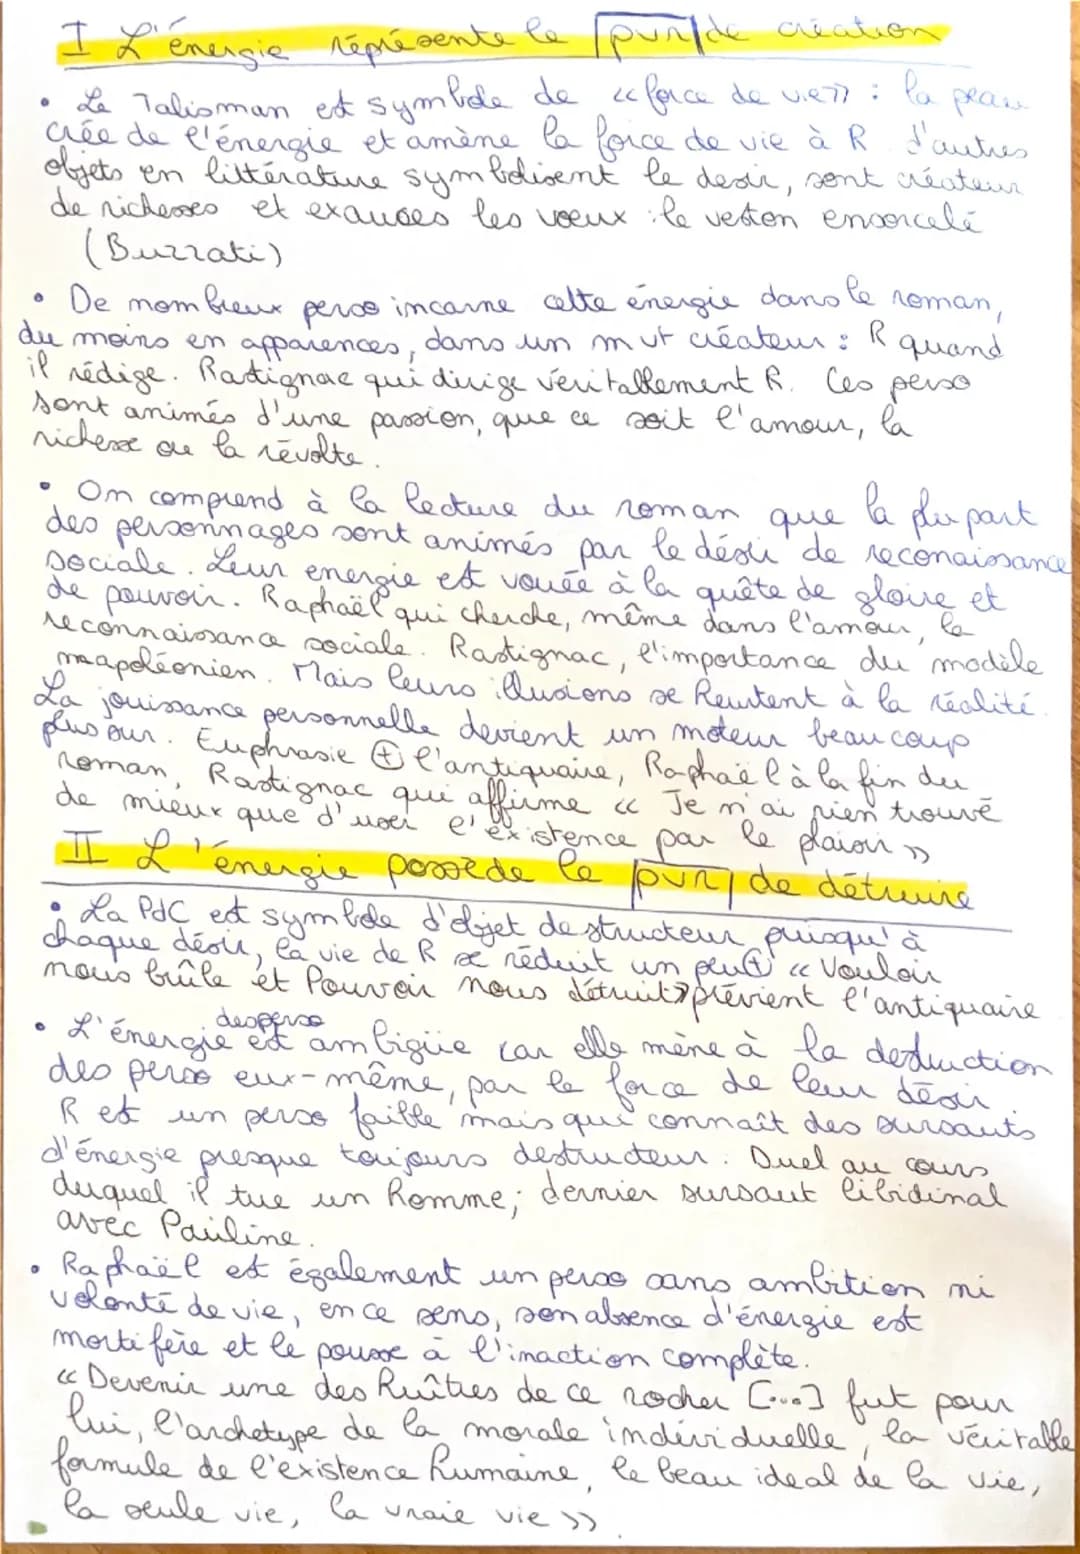 I L'énergie représente le pvr de création
• Le Talisman est symbole de « force de vie » : la peau
crée de l'énergie et amène la force de vie à R. d'autres
objets en littérature symbolisent le desir, sont créateur
de richesses et exaucés les voeux : le veston ensorcelé
(Buzzati)
• De nombreux perso incarne cette énergie dans le roman,
du moins en apparences, dans un mvt créateur : R quand
il rédige. Rastignac qui dirige véritablement R. Ces perso
sont animés d'une passion, que ce soit l'amour, la
richesse ou la révolte.
• On comprend à la lecture du roman que la plupart
des personnages sont animés par le désir de reconaissance
sociale. Leur energie est vouée à la quête de gloire et
de pouvoir. Raphaël qui cherche, même dans l'amour, la
reconnaissance sociale. Rastignac, l'importance du modèle
napoléonien. Mais leurs illusions se heurtent à la réalité.
La jouissance personnelle devient un moteur beaucoup
plus sur. Euphrasie + l'antiquaire, Raphaël à la fin du
roman, Rastignac qui affirme « Je n'ai rien trouvé
de mieux que d'user l'existence par le plaisir »
II L'énergie possède le pvr de détruire
• La PdC est symbole d'objet destructeur puisqu'à
chaque désir, la vie de R se réduit un peu + « Vouloir
nous brûle et Pouvoir nous détruit » prévient l'antiquaire
• L'énergie des perso est ambigüe car elle mène à la destruction
des perso eux-même, par la force de leur désir
R est un perso faible mais qui connaît des sursauts
d'énergie presque toujours destructeur. Duel au cours
duquel il tue un homme; dernier sursaut libidinal
avec Pauline.
• Raphaël est également un perso sans ambition ni
volonté de vie, en ce sens, son absence d'énergie est
mortifère et le pousse à l'inaction complète.
« Devenir une des huîtres de ce rocher [...] fut pour
lui, l'archetype de la morale individuelle, la véritable
formule de l'existence humaine, le beau ideal de la vie,
la seule vie, la vraie vie ».